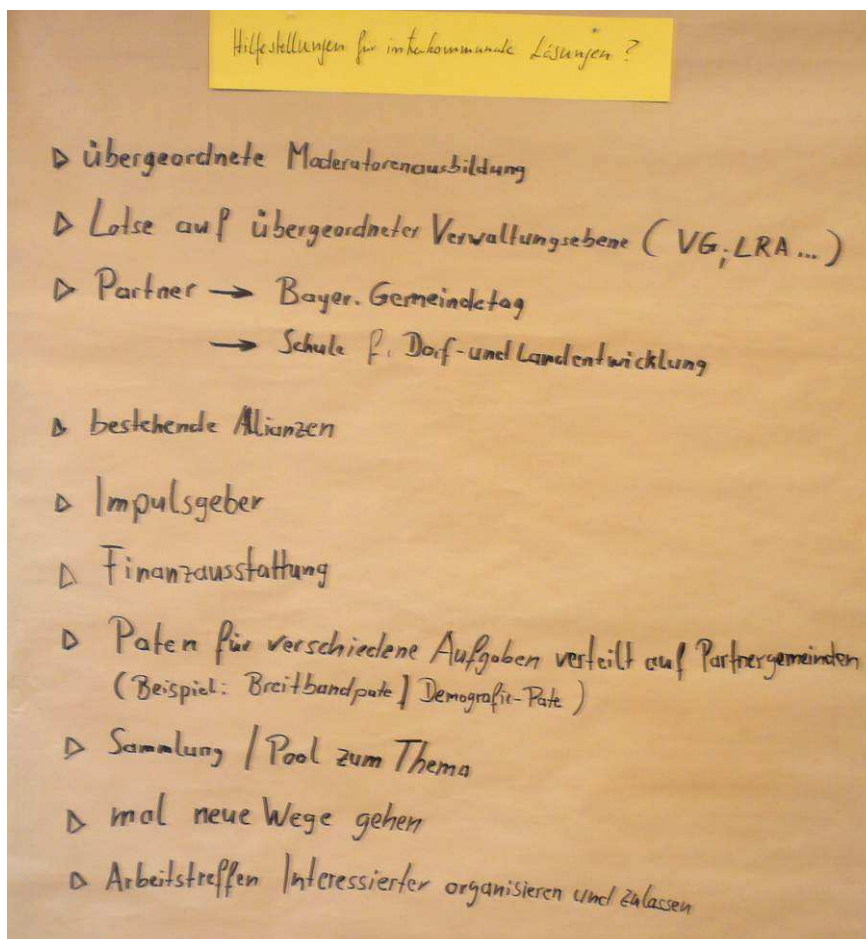 Hilfestellungen für interkommunale Lösungen?
▷ übergeordnete Moderatorenausbildung
▷ Lotse auf übergeordneter Verwaltungsebene (VG; LRA...)
▷ Partner → Bayer. Gemeindetag
→ Schule f. Dorf- und Landentwicklung
▷ bestehende Allianzen
▷ Impulsgeber
▷ Finanzausstattung
▷ Paten für verschiedene Aufgaben verteilt auf Partnergemeinden
(Beispiel: Breitbandpate / Demografie-Pate)
▷ Sammlung / Pool zum Thema
▷ mal neue Wege gehen
▷ Arbeitstreffen Interessierter organisieren und zulassen